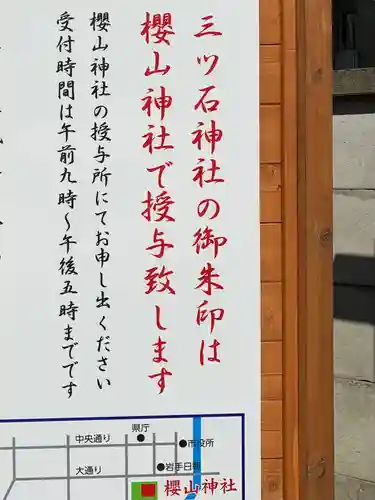 三ツ石神社の御朱印は
櫻山神社で授与致します
櫻山神社の授与所にてお申し出ください
受付時間は午前九時～午後五時までです
県庁
中央通り
市役所
大通り
岩手日報
櫻山神社